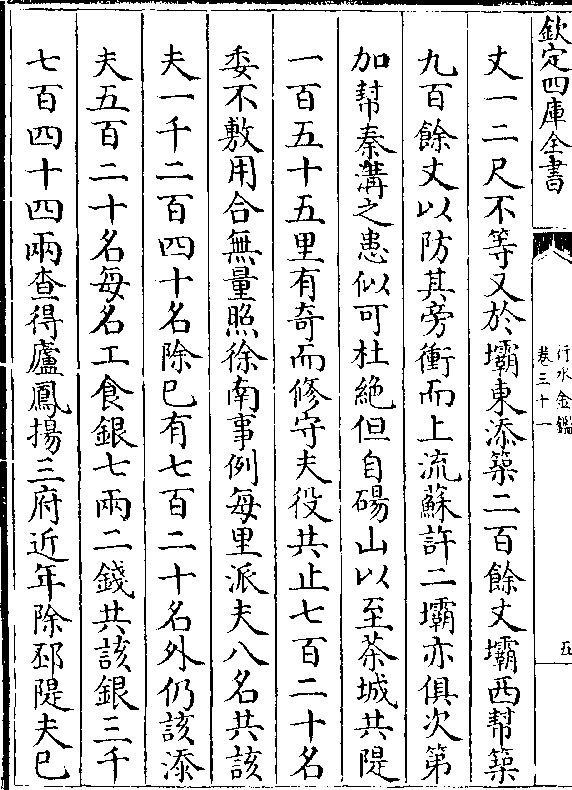 欽定四庫全書
行水金鑑
卷三十一
五
丈一二尺不等又於壩東添築二百餘丈壩西幫築
九百餘丈以防其旁衝而上流蘇許二壩亦俱次第
加幫秦溝之患似可杜絶但自碭山以至茶城共隄
一百五十五里有竒而修守夫役共止七百二十名
委不敷用合無量照徐南事例每里派夫八名共該
夫一千二百四十名除已有七百二十名外仍該添
夫五百二十名每名工食銀七兩二錢共該銀三千
七百四十四兩查得廬鳳揚三府近年除邳隄夫已